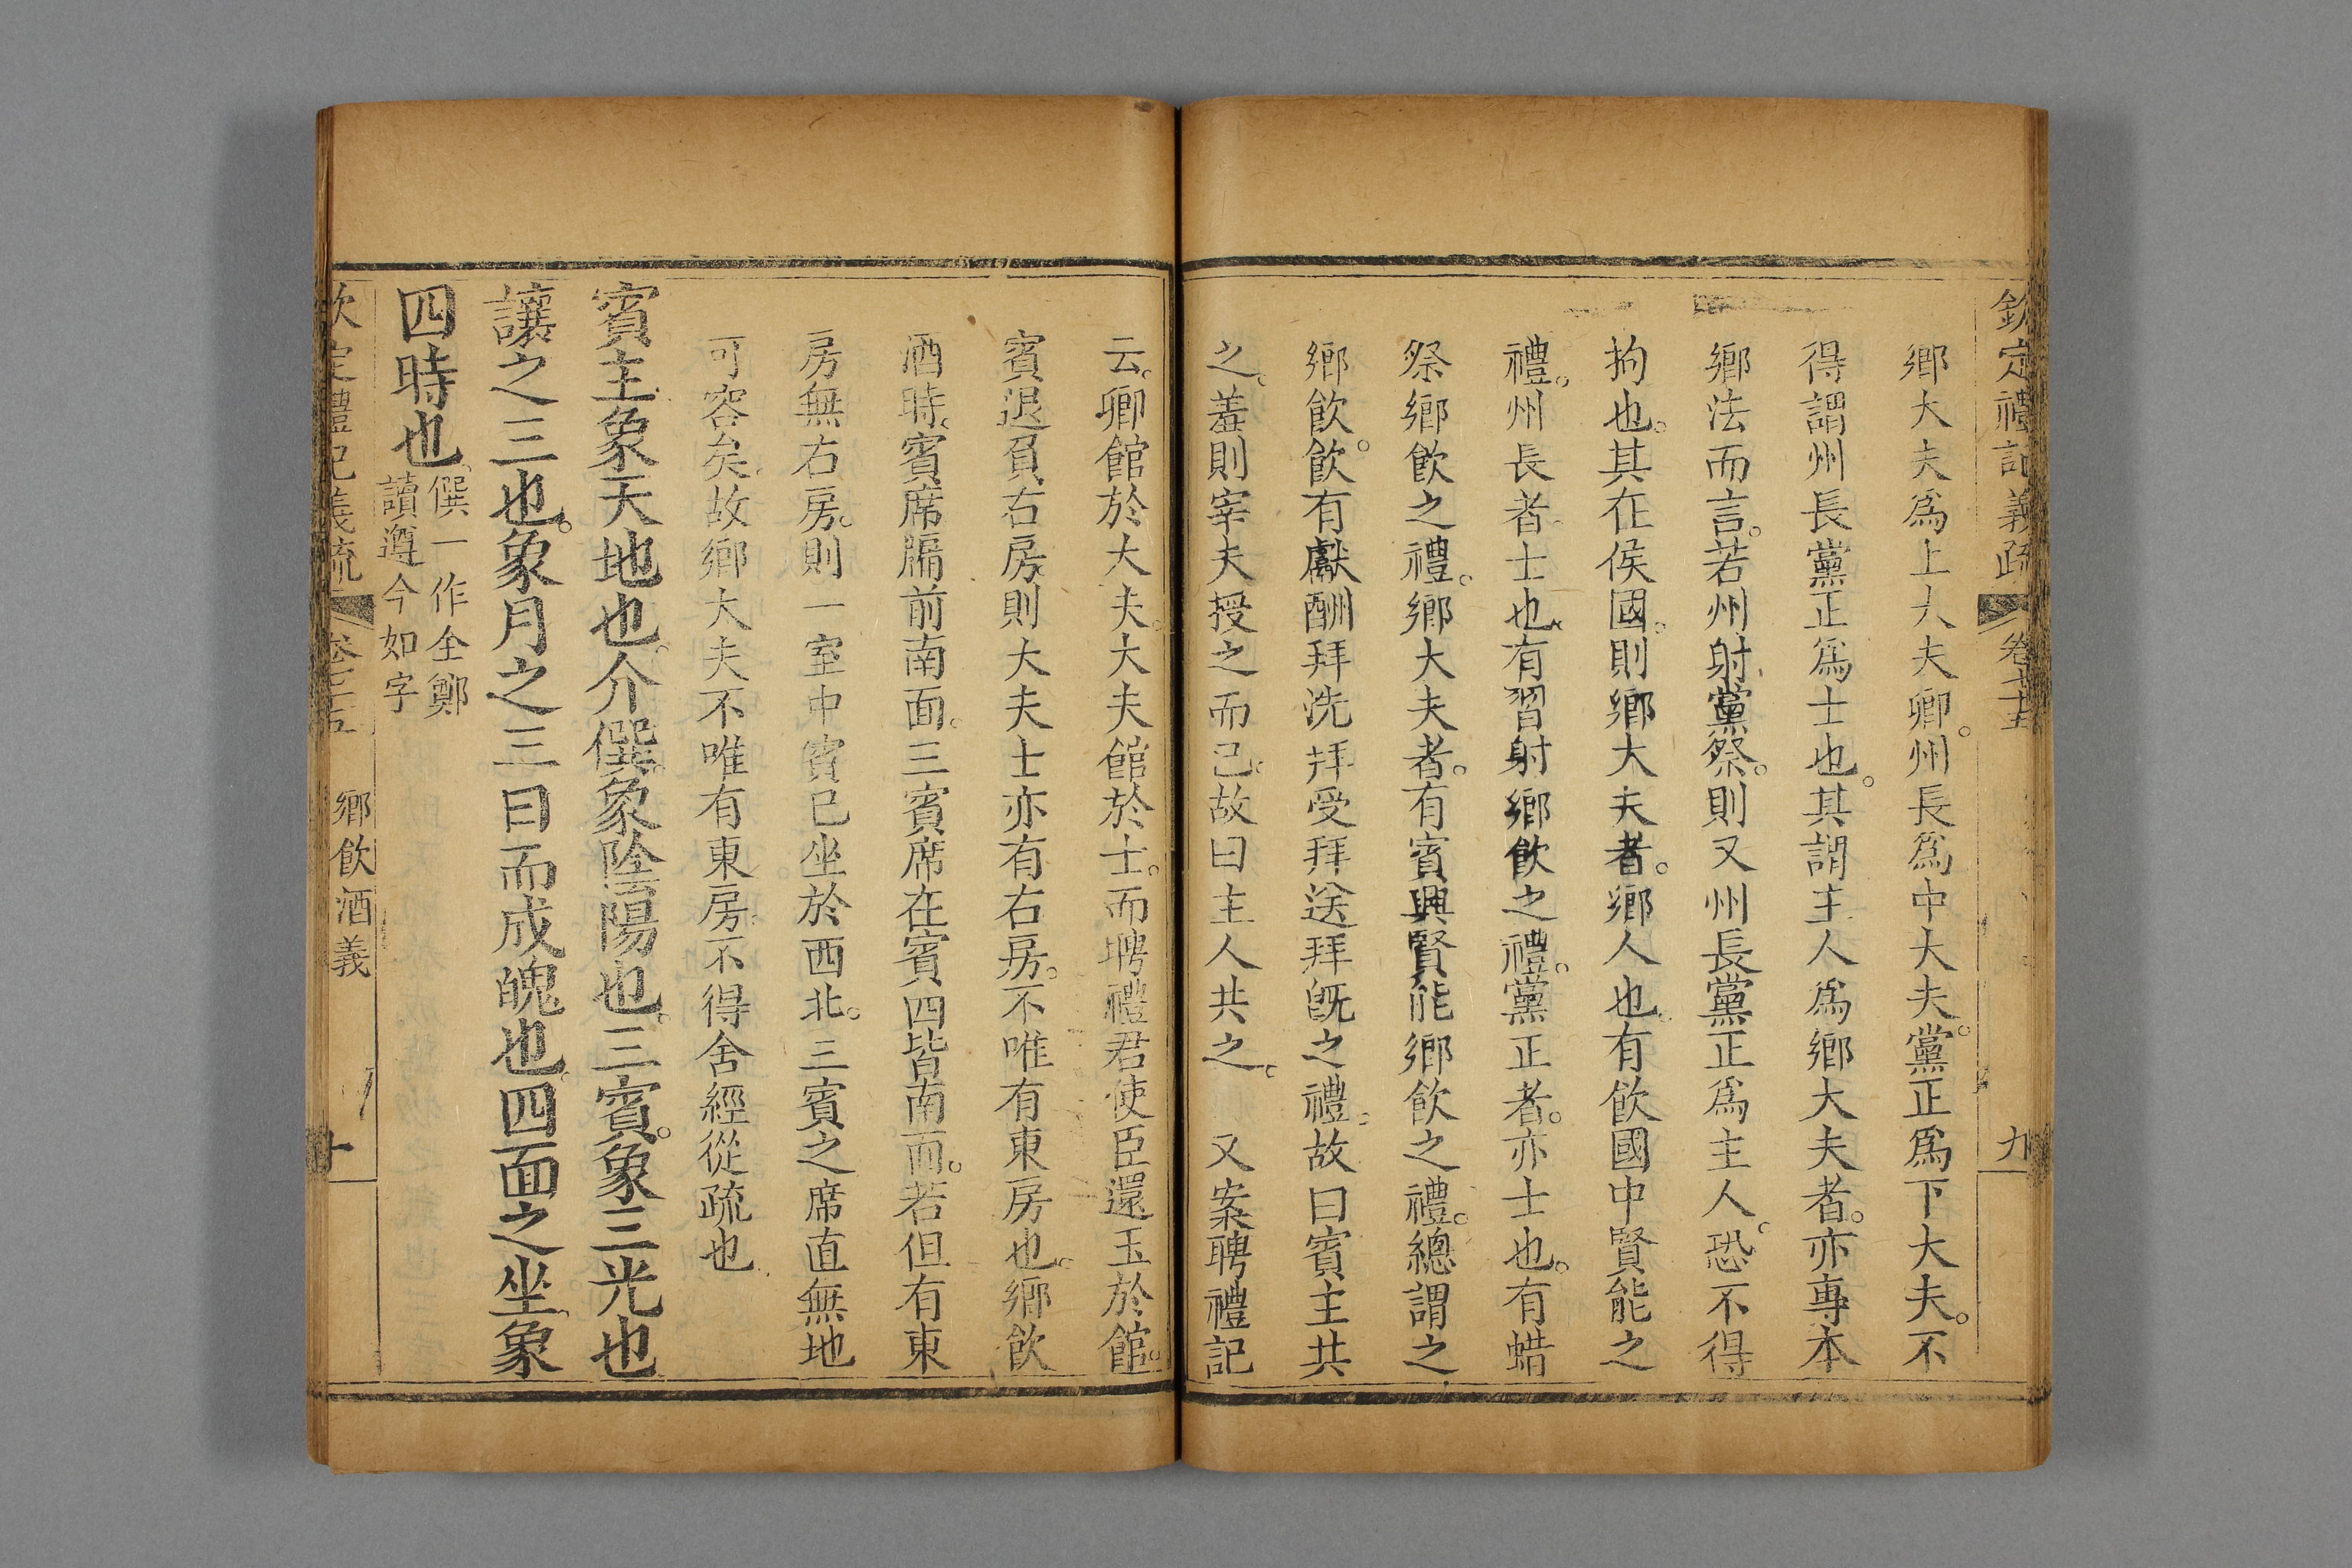 欽定禮記義疏 卷七十五 九
鄉大夫為上大夫卿。州長為中大夫。黨正為下大夫。不
得謂州長黨正為士也。其謂主人為鄉大夫者。亦專本
鄉法而言。若州射黨祭。則又州長黨正為主人。恐不得
拘也。其在侯國。則鄉大夫者。鄉人也。有飲國中賢能之
禮。州長者士也。有習射鄉飲之禮。黨正者。亦士也。有蜡
祭鄉飲之禮。鄉大夫者。有賓興賢能鄉飲之禮。總謂之
鄉飲。飲有獻酬拜洗拜受拜送拜旣之禮。故曰賓主共
之。羞則宰夫授之而已。故曰主人共之。 又案聘禮記
云。卿館於大夫。大夫館於士。而聘禮君使臣還玉於館。
賓退負右房。則大夫士亦有右房。不唯有東房也。鄉飲
酒時。賓席牖前南面。三賓席在賓西皆南面。若但有東
房無右房。則一室中賓已坐於西北。三賓之席直無地
可容矣。故鄉大夫不唯有東房。不得舍經從疏也
賓主象天地也。介僎。象陰陽也。三賓。象三光也
讓之三也。象月之三日而成魄也。四面之坐。象
四時也。僎一作全鄭
讀遵今如字
欽定禮記義疏 卷七十五 鄉飲酒義 十